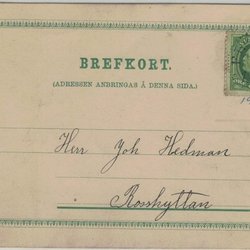 BREFKORT.
(ADRESSEN ANBRINGAS Å DENNA SIDA.)
Herr Joh Hedman
Rosshyttan